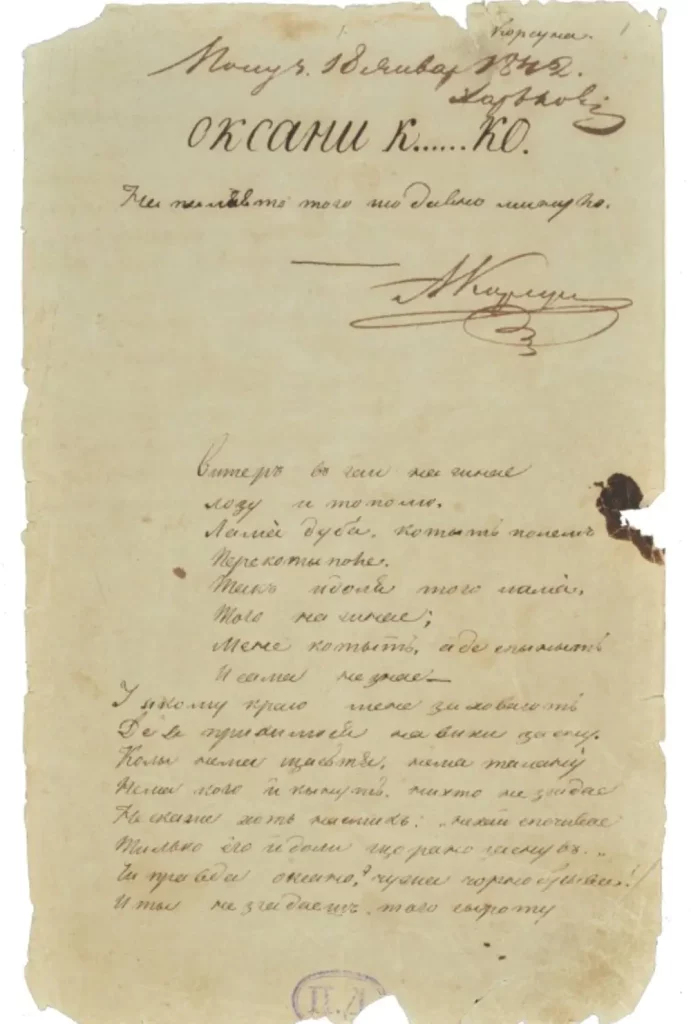 Корсуна.
Получ. 18 Январ 1842.
Харькові
ОКСАНИ К......КО.
На того що давно минуло.
АКорсун
Витеръ въ гаи нагинае
Лозу и тополю.
Лама дуба, котыть полемъ
Перекотыполе.
Такъ и доля того лама,
Того нагинае;
Мене котыть, а де спыныть
И сама незнае—
У якому краю мене заховають
Де я прихилюся навики засну.
Колы нема щастя, нема талану
Нема кого и кынуть, нихто не згадае
Не скаже хоть насмихъ: „нехай спочивае
Тилько его и доли що рано заснувъ.„
Чи правда оксано? чужа чорнобрыва!
И ты не згадаешъ того сыроту
П.